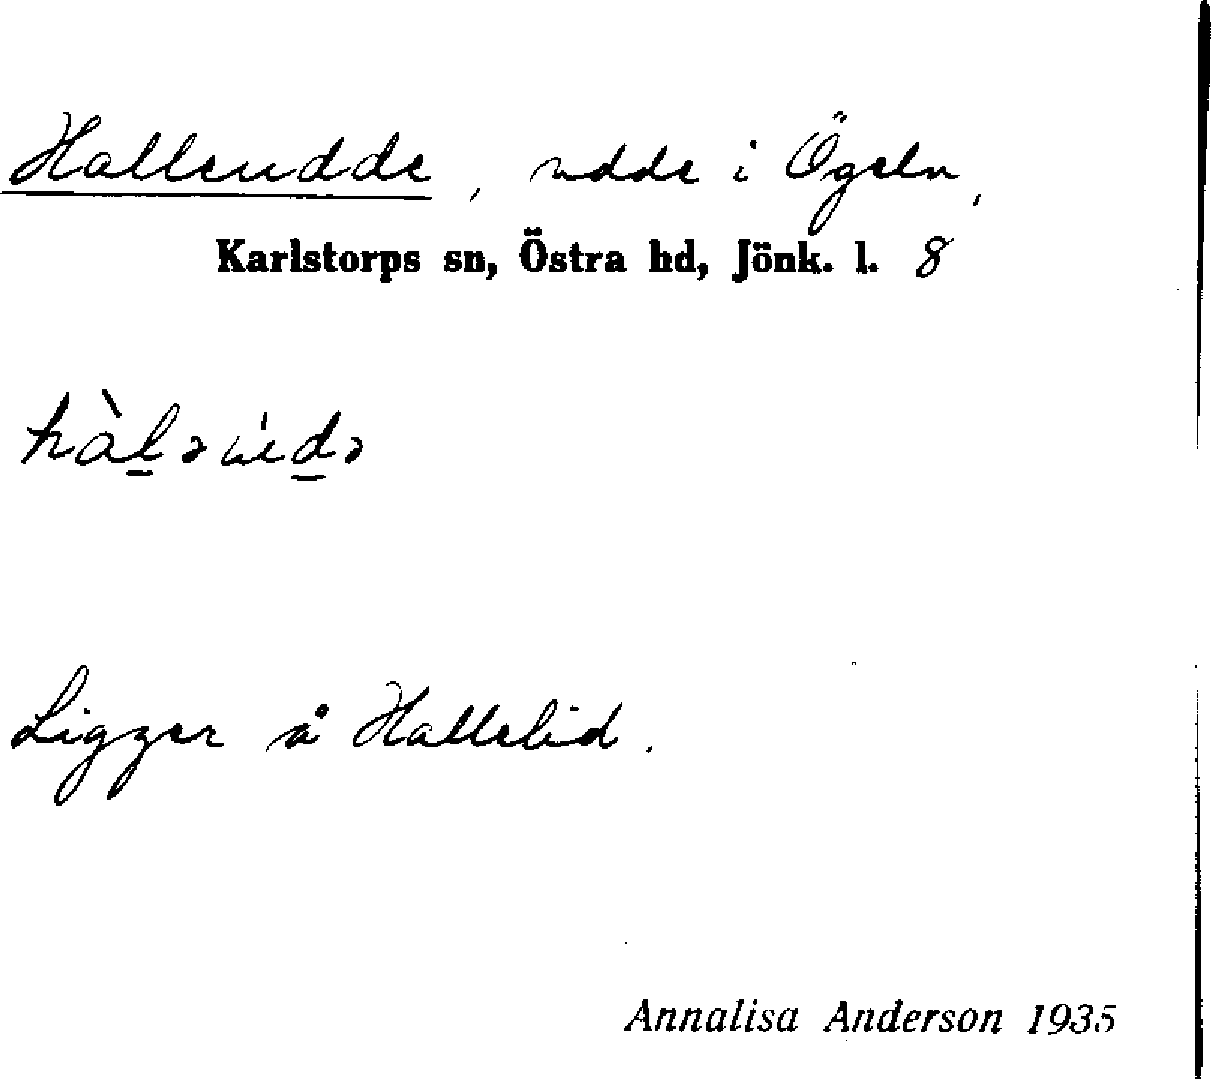 Halleudde, udde i Ögeln,
Karlstorps sn, Östra hd, Jönk. l. 8
hàl̲əùd̲ə
Ligger å Hallelid.
Annalisa Anderson 1935